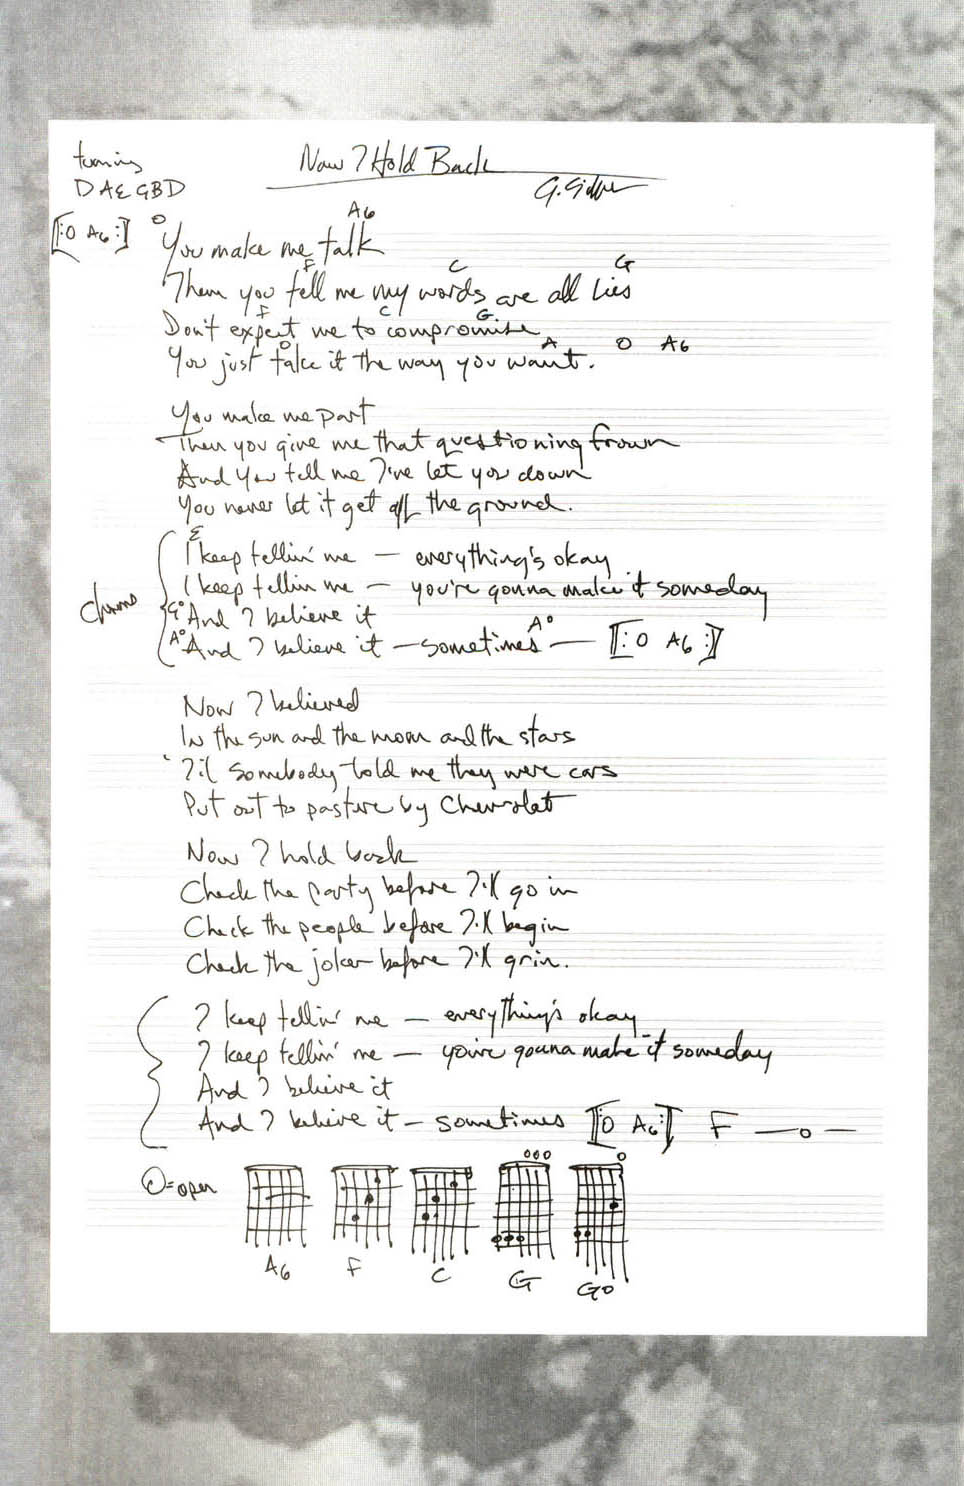 tuning
DAEGBD
Now I Hold Back
[: O A6 :]
O A6
You make me talk
F C G
Then you tell me my words are all lies
F C G
Don't expect me to compromise
O A O A6
You just take it the way you want.
You make me part
Then you give me that questioning frown
And you tell me I've let you down
You never let it get off the ground.
E
I keep tellin' me — everything's okay
Chorus
I keep tellin me — you're gonna make it someday
G° And I believe it
A°
A° And I believe it — sometimes — [: O A6 :]
Now I believed
In the sun and the moon and the stars
'Til somebody told me they were cars
Put out to pasture by Chevrolet
Now I hold back
Check the party before I'll go in
Check the people before I'll begin
Check the joker before I'll grin.
I keep tellin' me — everything's okay
I keep tellin' me — you're gonna make it someday
And I believe it
And I believe it — sometimes [: O A6 :] F — o —
O = open
A6 F C G G°